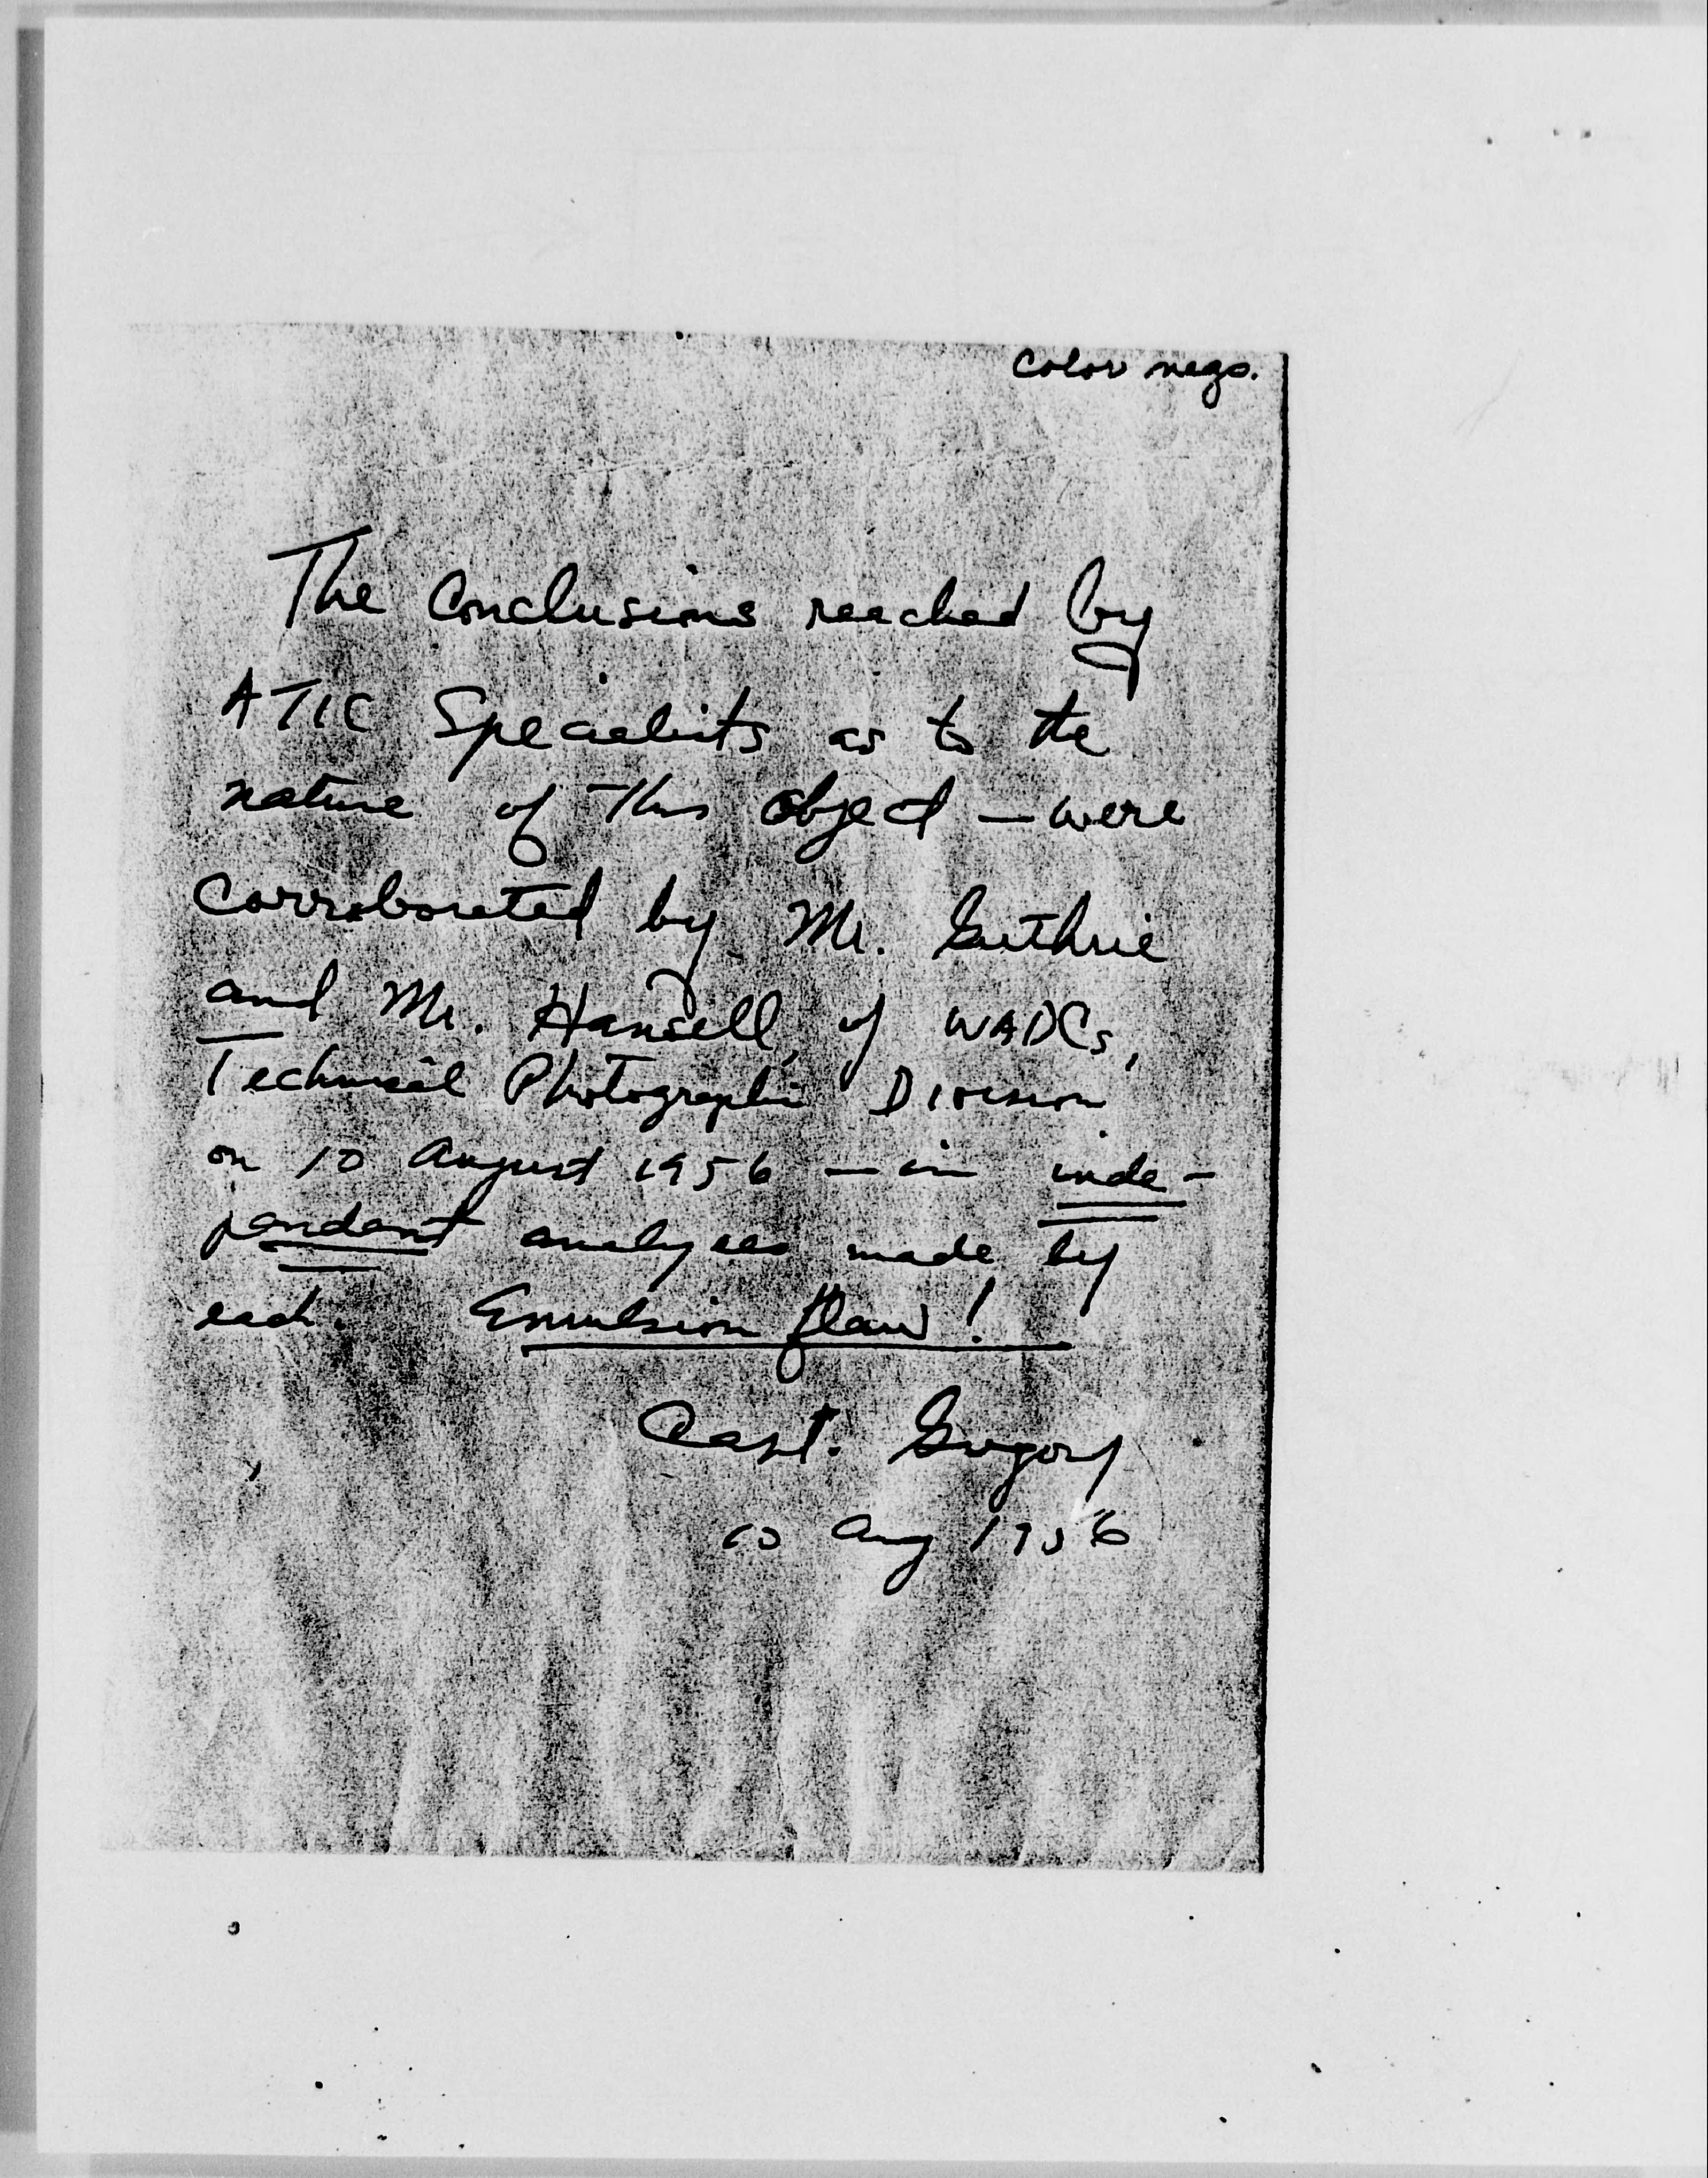 Color negs.
The Conclusions reached by
ATIC Specialists as to the
nature of this object — were
Corroborated by Mr. Guthrie
and Mr. Hansell, of WADCs,
Technical Photographic Division
on 10 August 1956 — in inde-
pendant analyses made by
each. Emulsion flaw!
Capt. Gregory
10 Aug 1956